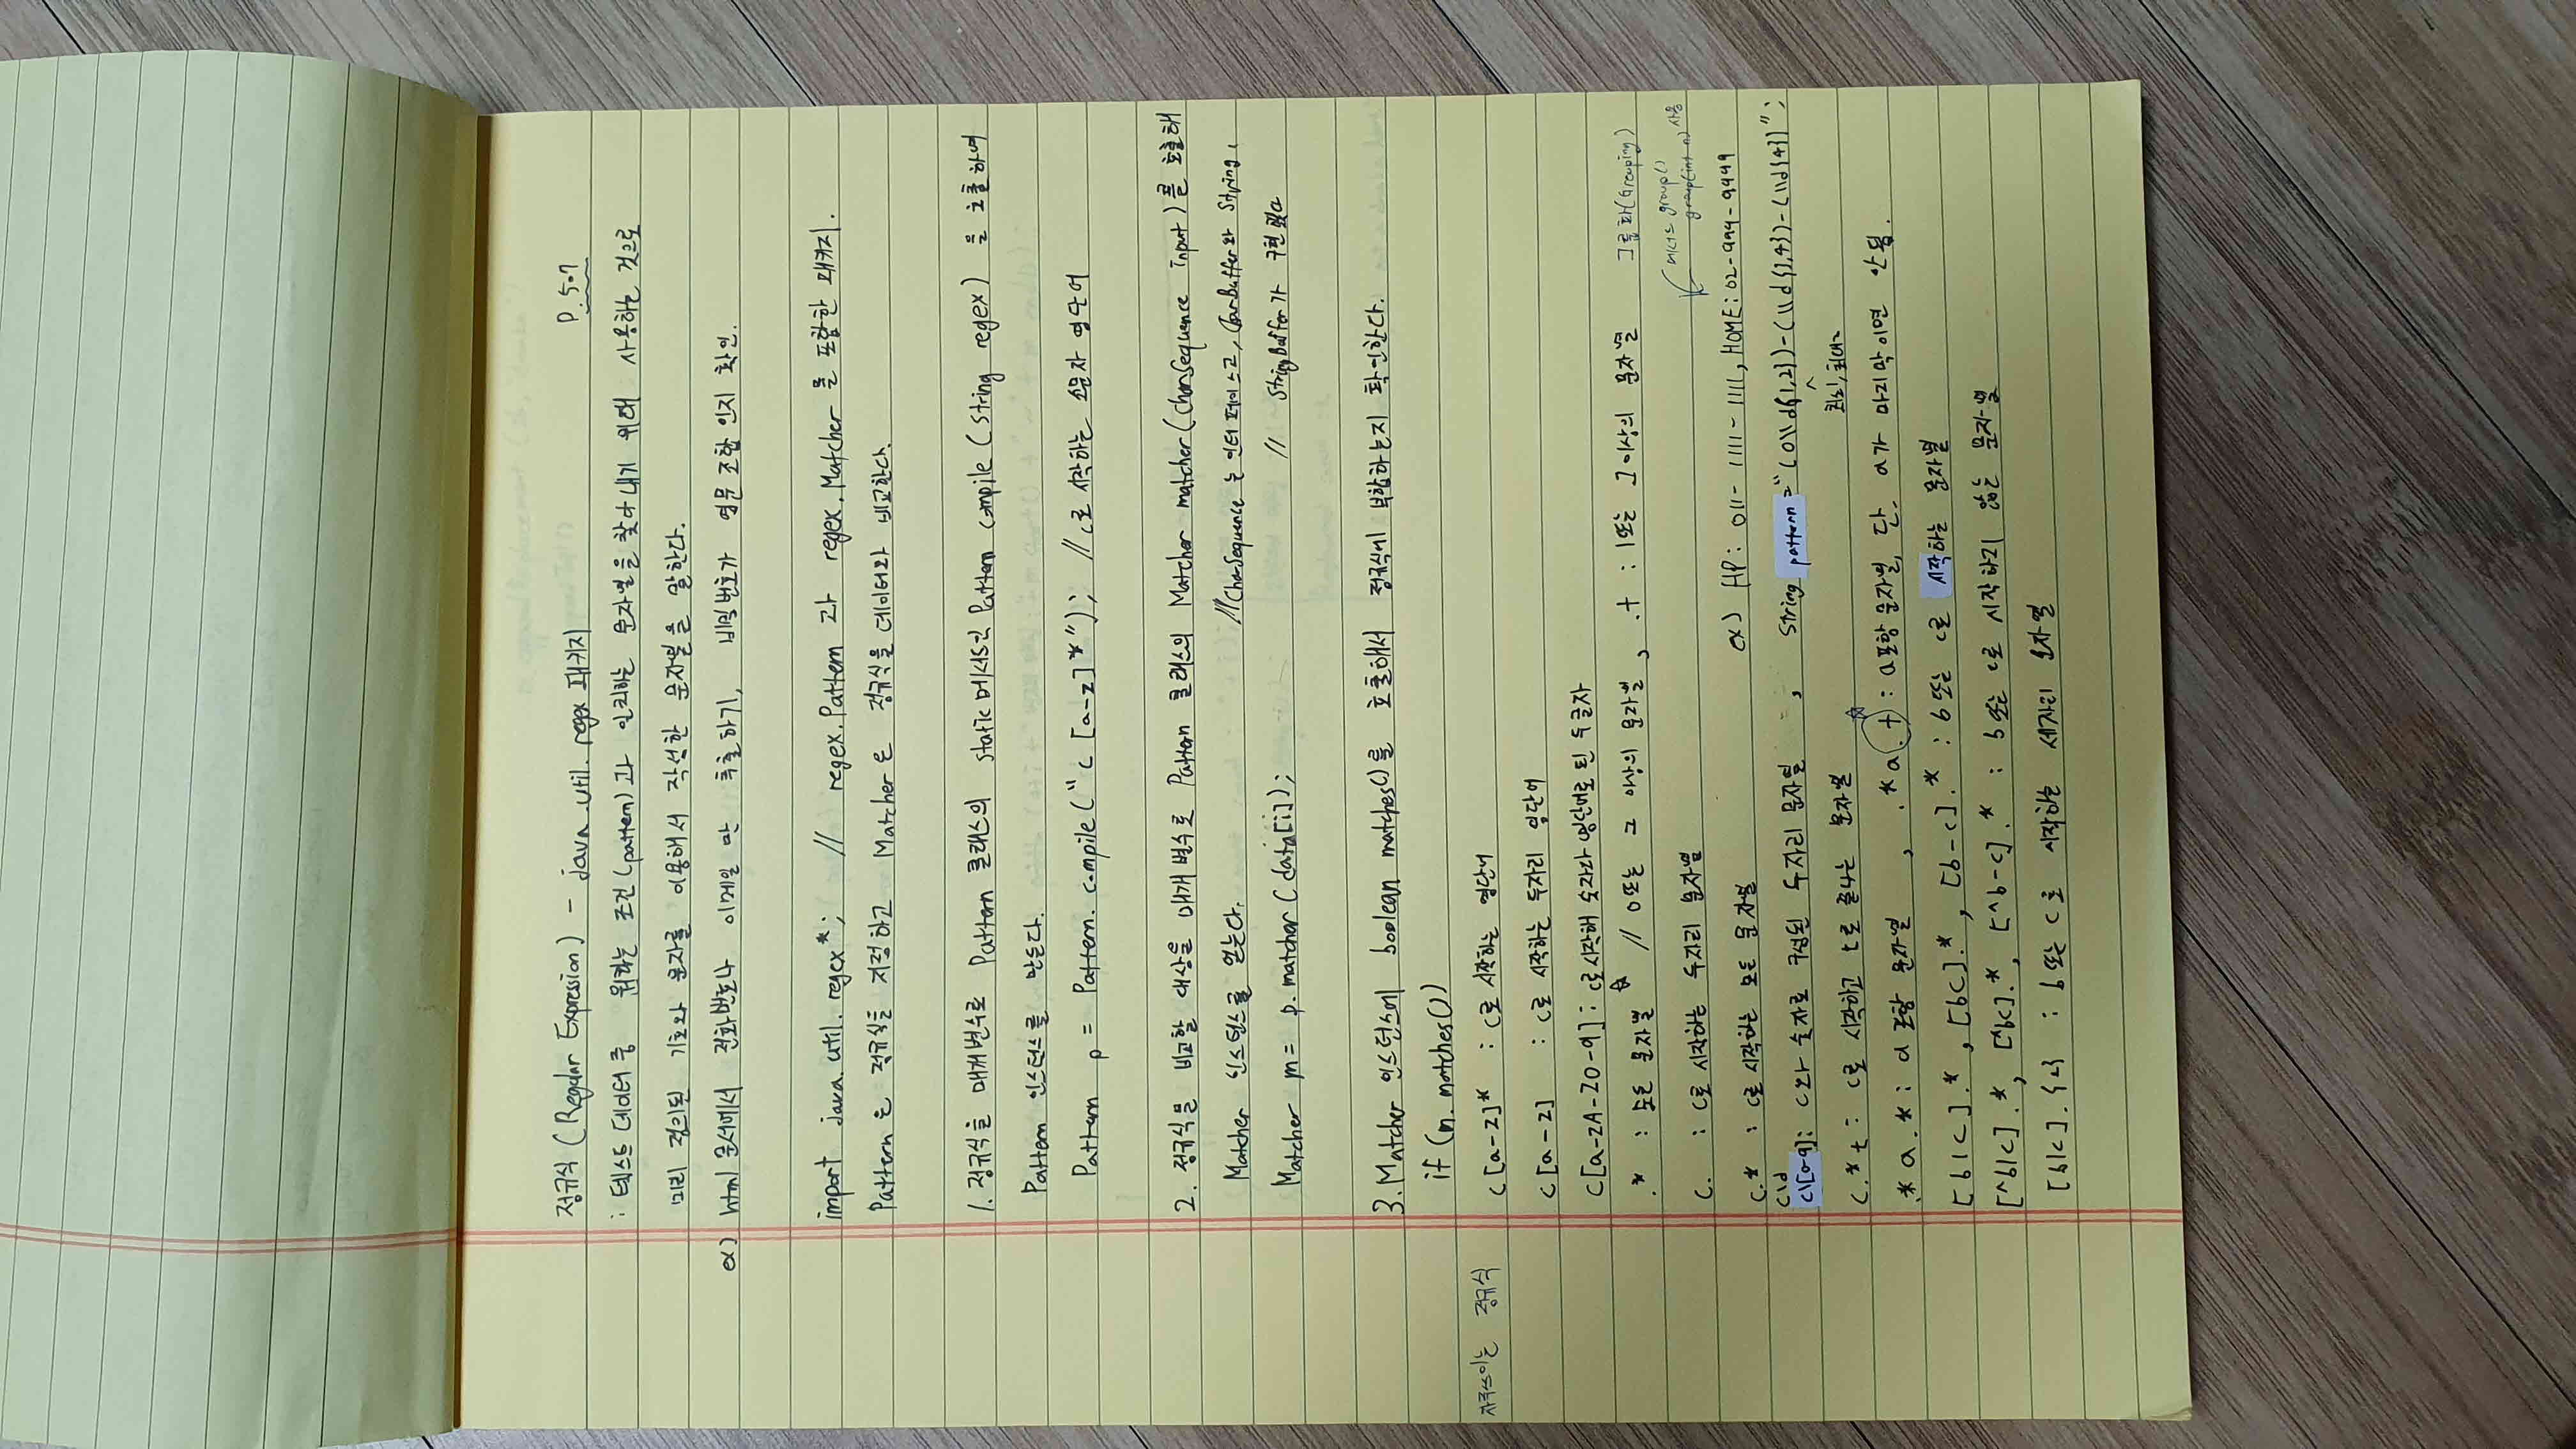 정규식 (Regular Expression) - java.util.regex 패키지 P.507
: 텍스트 데이터 중 원하는 조건(pattern)과 일치하는 문자열을 찾아내기 위해 사용하는 것으로
미리 정의된 기호와 문자를 이용해서 작성한 문자열을 말한다.
ex) html 문서에서 전화번호나 이메일 만 추출하기, 비밀번호가 영문 조합 인지 확인.
import java.util.regex*; // regex.Pattern 과 regex.Matcher 를 포함한 패키지.
Pattern 은 정규식을 지정하고 Matcher은 정규식을 데이터와 비교한다.
1. 정규식을 매개변수로 Pattern 클래스의 static 메서드인 Pattern compile (String regex) 을 호출하여
Pattern 인스턴스를 만든다.
Pattern p = Pattern.compile("c[a-z]*"); // c로 시작하는 소문자 영단어
2. 정규식을 비교할 대상을 매개 변수로 Pattern 클래스의 Matcher matcher(CharSequence input)를 호출해
Matcher 인스턴스를 얻는다. //CharSequence 는 인터페이스고, CharBuffer와 String,
Matcher m = p.matcher(data[i]); // StringBuffer가 구현했다
3. Matcher 인스턴스에 boolean matches()를 호출해서 정규식에 부합하는지 확인한다.
if (m.matches())
자주쓰이는 정규식 c[a-z]* : c로 시작하는 영단어
c[a-z] : c로 시작하는 두자리 영단어
c[a-zA-Z0-9] : c로시작해 숫자와 영단어로 된 두글자
.* : 모든 문자열 ☆ // 0또는 그 이상의 문자열, .+ : 1또는 그이상의 문자열 그룹화(Grouping)
메서드 group()
group(int n) 사용
c. : c로 시작하는 두자리 문자열
c.* : c로 시작하는 모든 문자열 ex) HP: 011-1111-1111, HOME: 02-999-9999
c\d
c\[0-9]: c와 숫자로 구성된 두자리 문자열 , String pattern="(0\\d{1,2})-(\\d{3,4})-(\\d{4})";
최소, 최대
c.*t : c로 시작하고 t로 끝나는 문자열
.*a.* : a 포함 문자열 , .*a(.+) ☆ : a포함 문자열, 단, a가 마지막이면 안됨.
[b|c].*, [bc].*, [b-c].* : b또는 c로 시작하는 문자열
[^b|c].*, [^bc].*, [^b-c].* : b또는 c로 시작하지 않는 문자열
[b|c].{2} : b 또는 c로 시작하는 세자리 문자열